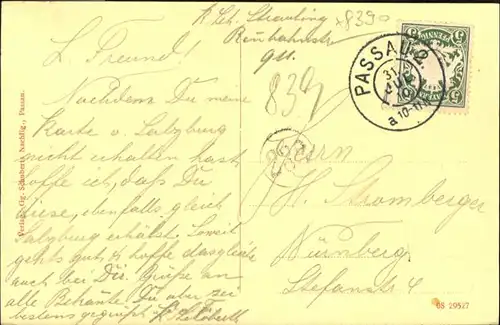 L. Freund!
Nachdem Du meine
Karte v. Salzburg
nicht erhalten hast
hoffe ich, daß Du
diese, ebenfalls gleich
Salzburg erhälst. Soweit
gehts gut u. hoffe dasgleiche
auch bei Dir. Grüße an
alle Bekannte. Du aber sei
bestens gegrüßt
Straubing
839
PASSAU 2
31
10-11
BAYERN
Herrn
H. Stromberger
Nürnberg
Stefanstr 4
Verlag v. Gg. Schubert Nachflg., Passau.
08 29527